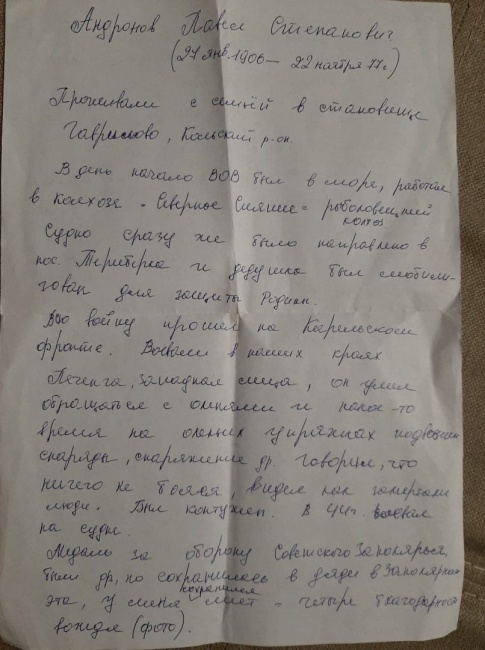 Андронов Павел Степанович
(27 янв. 1906 — 22 ноября 77 г.)
Проживали с семьёй в становище
Гаврилово, Кольский р-он.
В день начало ВОВ был в море, работал
в колхозе "Северное Сияние" рыболовецкий
колхоз
Судно сразу же было направлено в
пос. Териберка и дедушка был мобили-
зован для защиты Родины.
Всю войну прошел на Карельском
фронте. Воевали в наших краях
Печенга, Западная Лица, он умел
обращаться с оленями и какое-то
время на оленьих упряжках подвозили
снаряды, снаряжение др. Говорил, что
ничего не боялся, видел как замерзали
люди. Был контужен. В 44г. воевал
на судне.
Медаль за оборону Советского Заполярья,
были др, но сохранилась у дяди в Заполярном
эта, у меня лист - четыре благодарности
сохранился
вождя (фото).